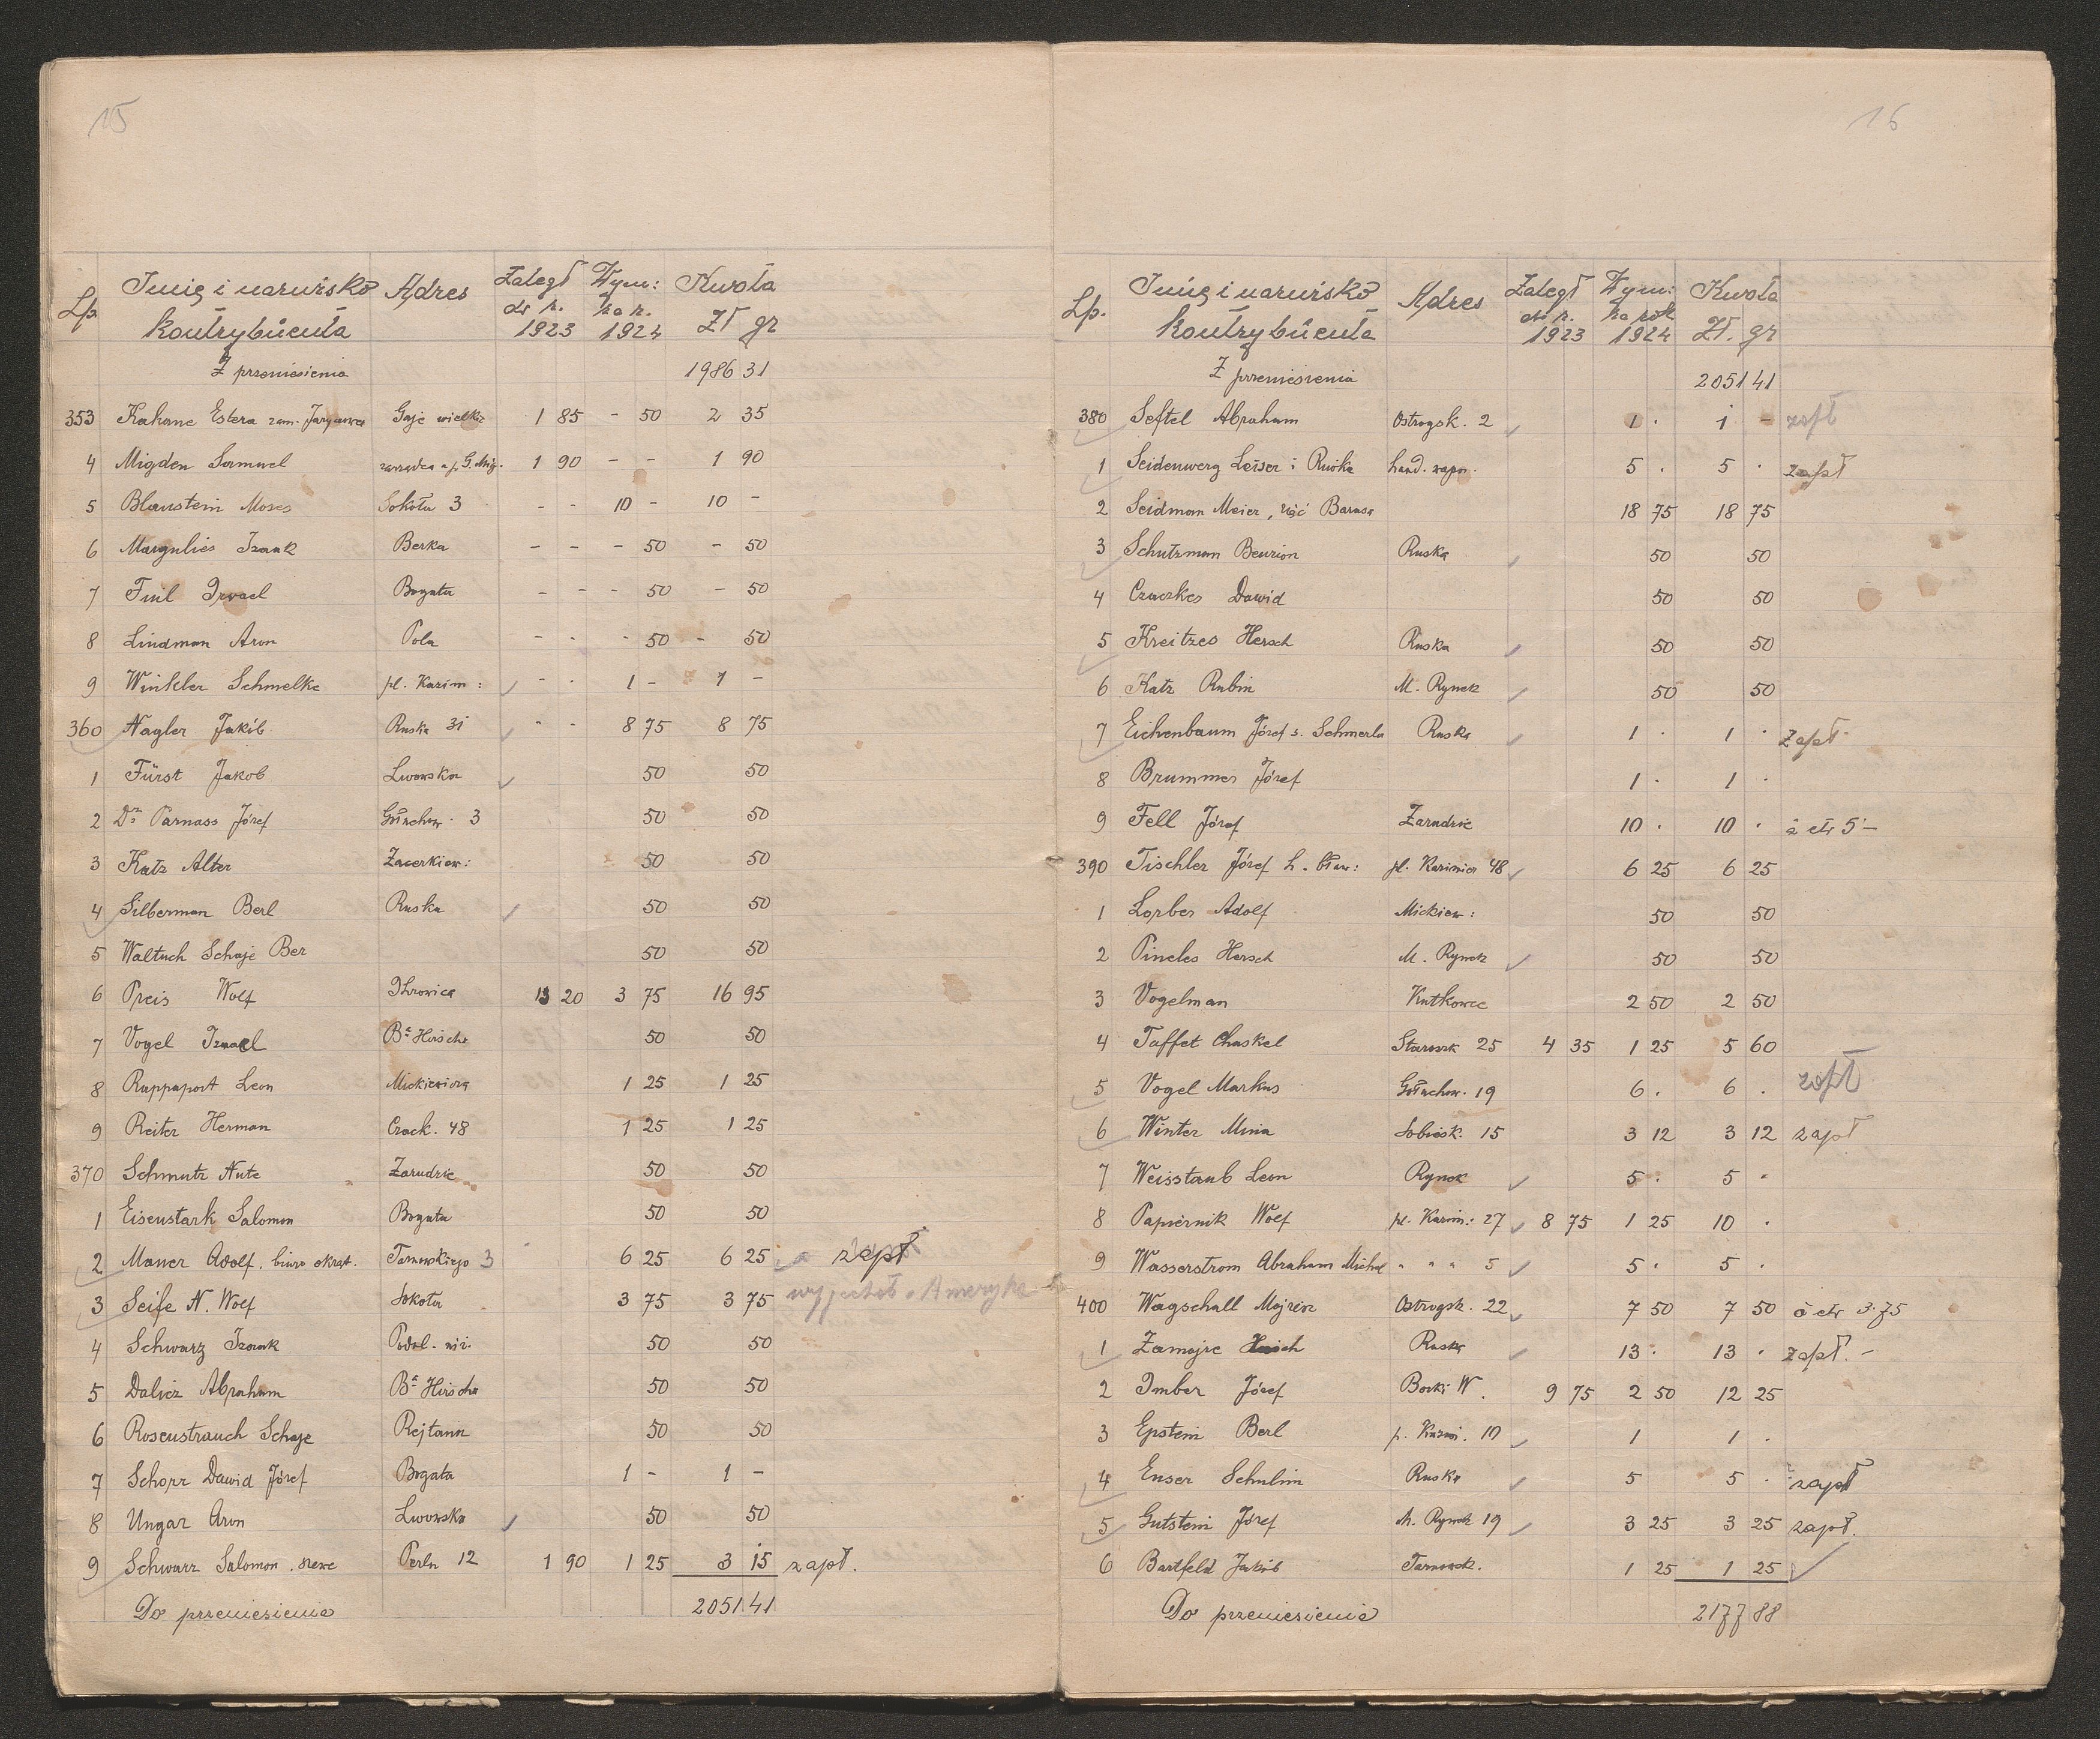 15
Lp. Imię i nazwisko kontrybuenta Adres Zaległ do r. 1923 Wym: za r. 1924 Kwota Zł gr
Z przeniesienia 1986 31
353 Kahane Estera zam. Jaryczower Gaje wielkie 1 85 - 50 2 35
4 Migden Samuel 1 90 - - 1 90
5 Blaustein Moses Sokoła 3 - - 10 - 10 -
6 Margulies Izaak Berka - - - 50 - 50
7 Izrael Bogata - - - 50 - 50
8 Lindman Aron Pola - - - 50 - 50
9 Winkler Schmelke pl. Kazim: - - 1 - 1 -
360 Nagler Jakób Ruska 31 - - 8 75 8 75
1 Fürst Jakob Lwowska 50 50
2 Dr Parnass Józef 3 50 50
3 Katz Alter Zacerkiew: 50 50
4 Silberman Berl Ruska 50 50
5 Waltuch Schaje Ber 50 50
6 Preis Wolf Ihrowica 13 20 3 75 16 95
7 Vogel Izrael Ba Hirscha 50 50
8 Rappaport Leon Mickiewicza 1 25 1 25
9 Reiter Herman Crack. 48 1 25 1 25
370 Schmutz Nute Zarudzie 50 50
1 Eisenstark Salomon Bogata 50 50
2 Mauer Adolf, biuro okręt. Tarnowskiego 3 6 25 6 25 zapł
3 Seife N. Wolf Sokoła 3 75 3 75 Ameryka
4 Schwarz Izaak Podol. niż. 50 50
5 Dalicz Abraham Ba Hirscha 50 50
6 Rosenstrauch Schaje Rejtana 50 50
7 Schorr Dawid Józef Bogata 1 - 1 -
8 Ungar Aron Lwowska 50 50
9 Schwarz Salomon, szewc Perla 12 1 90 1 25 3 15 zapł.
Do przeniesienia 2051 41
16
Lp. Imię i nazwisko kontrybuenta Adres Zaległ do r. 1923 Wym: za rok 1924 Kwota Zł. gr
Z przeniesienia 2051 41
380 Seftel Abraham Ostrogsk. 2 1 . 1 - zapł
1 Seidenwerg Leiser i Rużka hand. wapn. 5 . 5 . zapł
2 Seidman Meier, zięć Barasa 18 75 18 75
3 Schutzman Benzion Ruska 50 50
4 Czaczkes Dawid 50 50
5 Kreitzes Hersch Ruska 50 50
6 Katz Rubin M. Rynek 50 50
7 Eichenbaum Józef s. Schmerla Ruska 1 . 1 . zapł
8 Brummer Józef 1 . 1 .
9 Fell Józef Zarudzie 10 . 10 . 5 -
390 Tischler Józef h. bław: pl. Kazimierz 48 6 25 6 25
1 Lorber Adolf Mickiew: 50 50
2 Pineles Hersch M. Rynek 50 50
3 Vogelman Kutkowce 2 50 2 50
4 Taffet Chaskel 25 4 35 1 25 5 60
5 Vogel Markus 19 6 . 6 . zapł
6 Winter Mina Sobiesk. 15 3 12 3 12 zapł
7 Weisstaub Leon Rynek 5 . 5 .
8 Papiernik Wolf pl. Kazim: 27 8 75 1 25 10 .
9 Wasserstrom Abraham Michel " " " 5 5 . 5 .
400 Wagschall Mojżesz Ostrogsk. 22 7 50 7 50 3.75
1 Zamojre Hersch Ruska 13 . 13 . zapł. -
2 Imber Józef Borki W. 9 75 2 50 12 25
3 Epstein Berl p. Kazim. 10 1 1 .
4 Enser Schulim Ruska 5 5 . zapł
5 Gutstein Józef M. Rynek 19 3 25 3 25 zapł.
6 Bartfeld Jakób Tarnowsk. 1 25 1 25
Do przeniesienia 2177 88